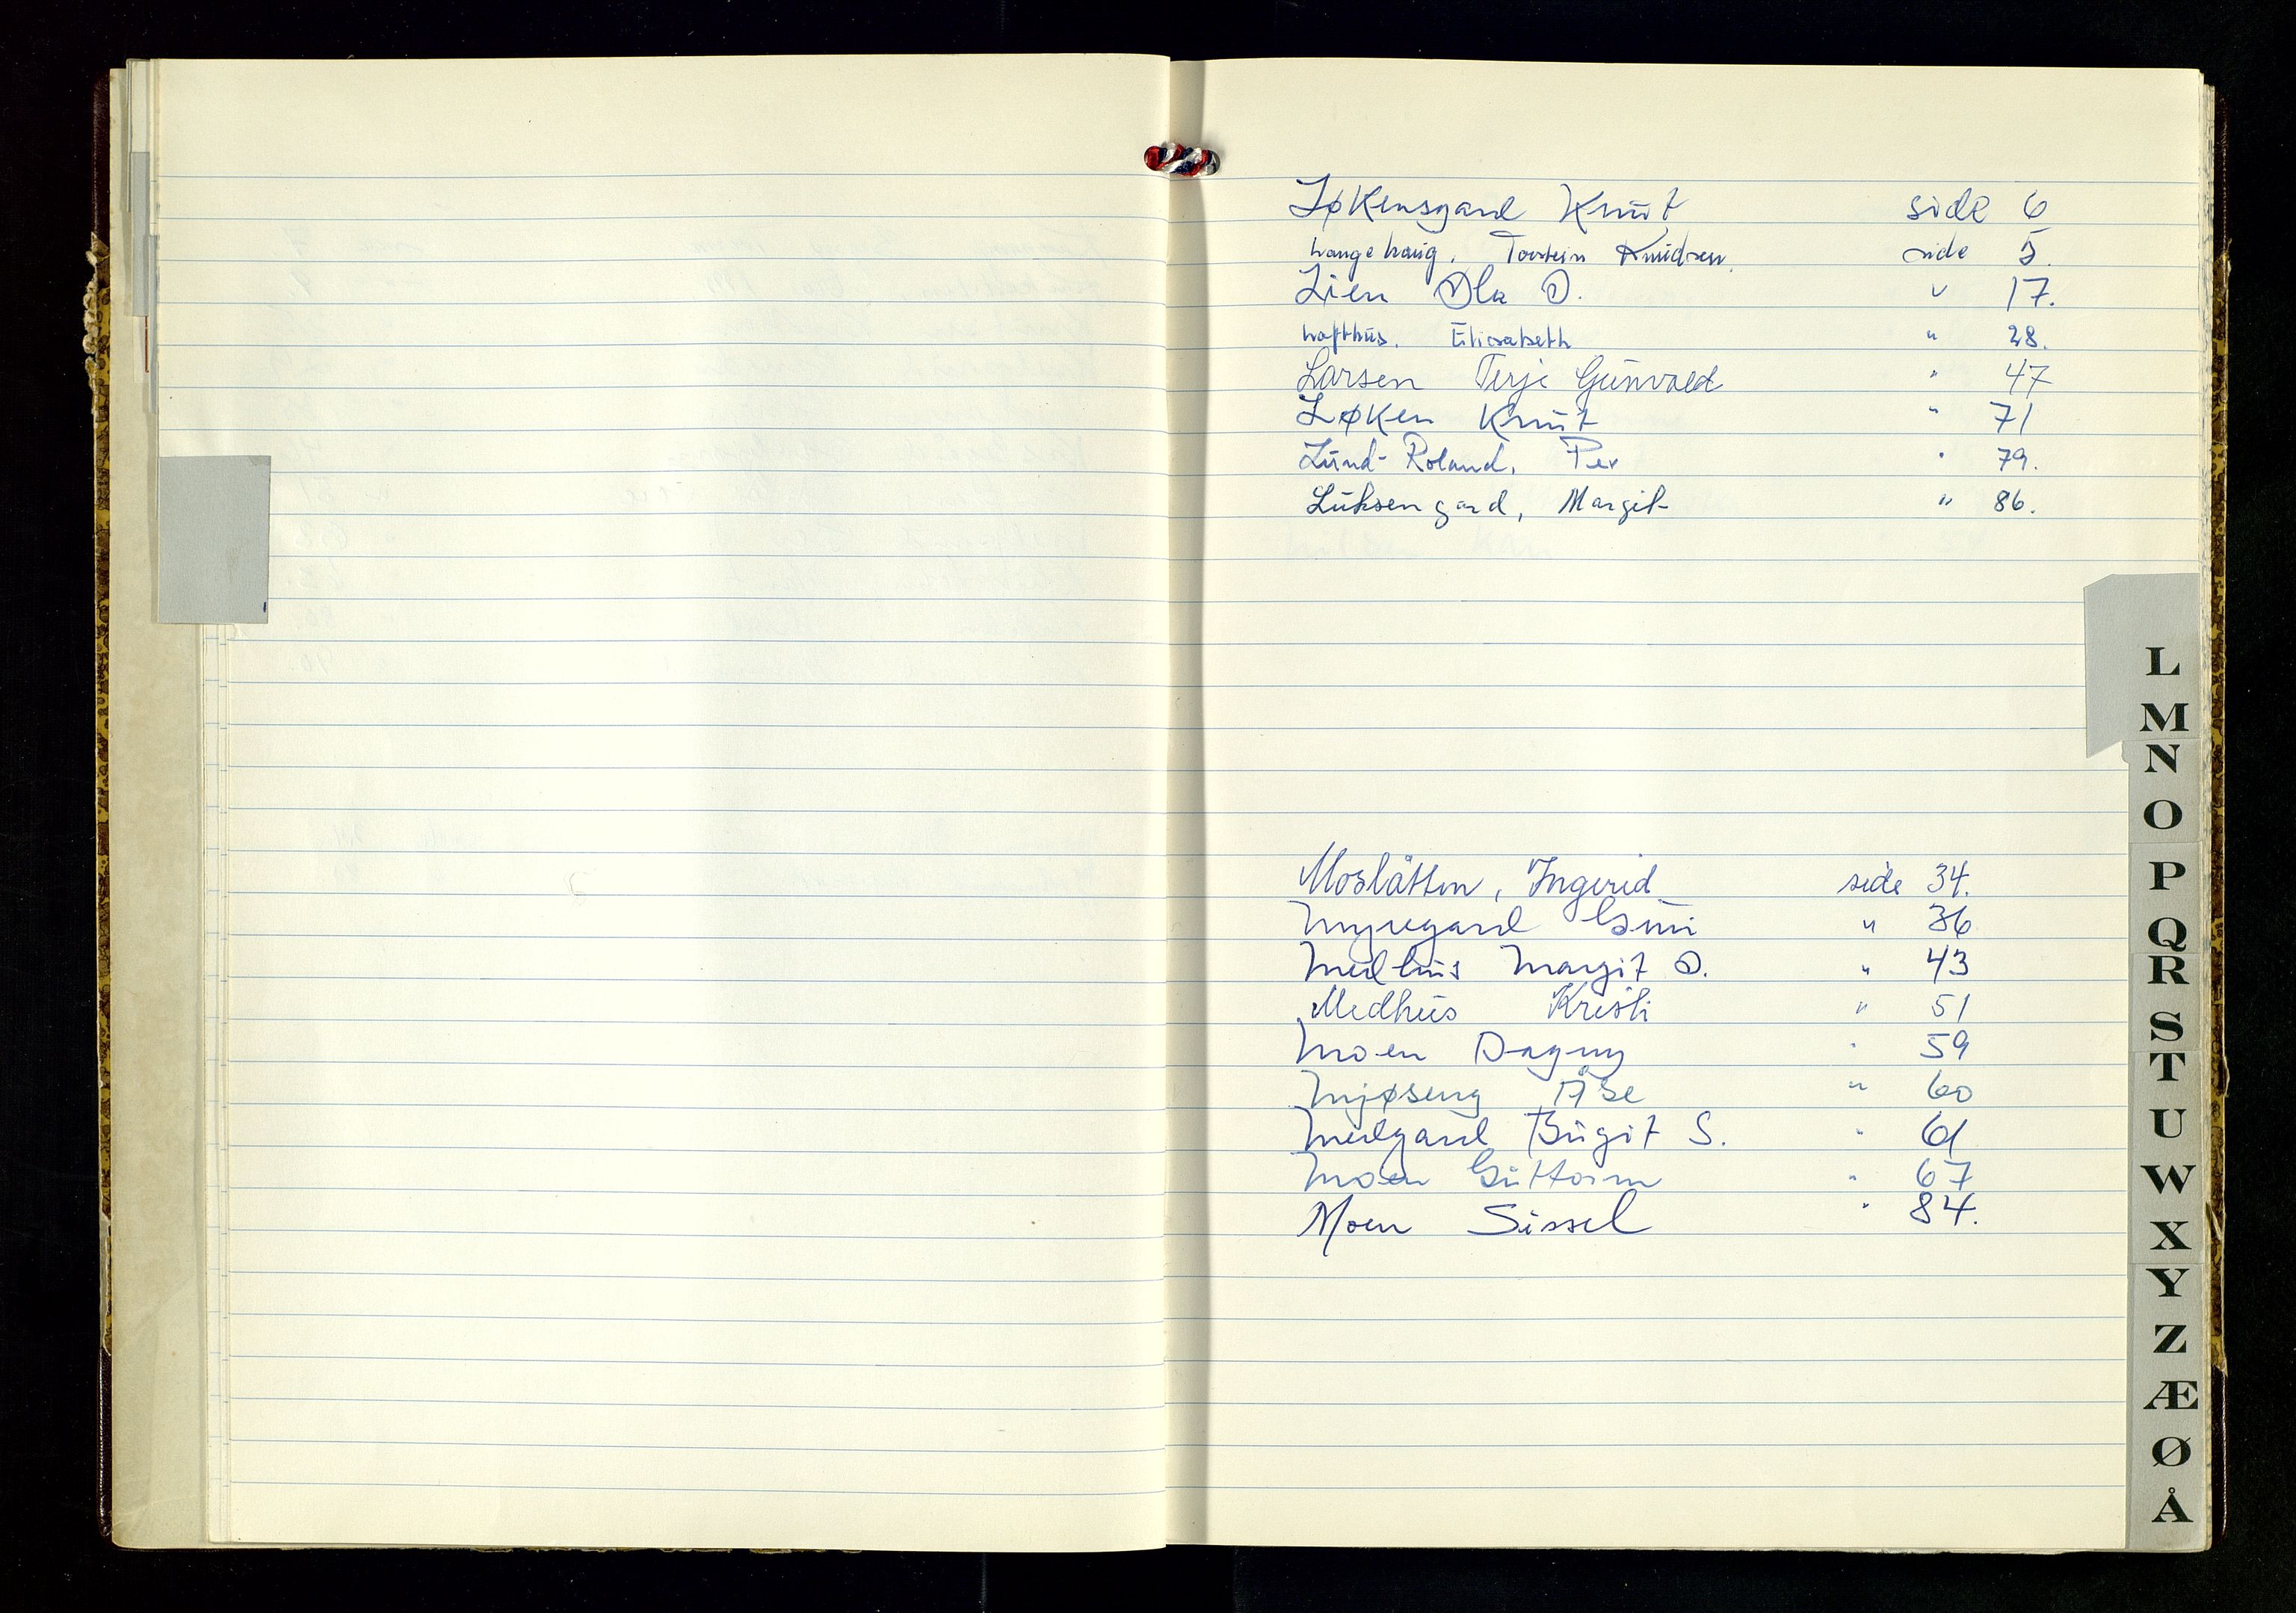 Løkensgard Knut side 6
Langehaug, Torstein Knudsen side 5.
Lien Ola O. " 17.
Lofthus. Elisabeth " 28.
Larsen Terje Gunvald " 47
Løken Knut " 71
Lund-Roland, Per " 79.
Luksengard, Margit " 86.
Moslåtten, Ingerid side 34.
Myregard Guri " 36
Medhus Margit O. " 43
Medhus Kristi " 51
Moen Dagny " 59
Mjøseng Åse " 60
Medgard Birgit S. " 61
Moen Guttorm " 67
Moen Sissel " 84.
L
M
N
O
P
Q
R
S
T
U
W
X
Y
Z
Æ
Ø
Å